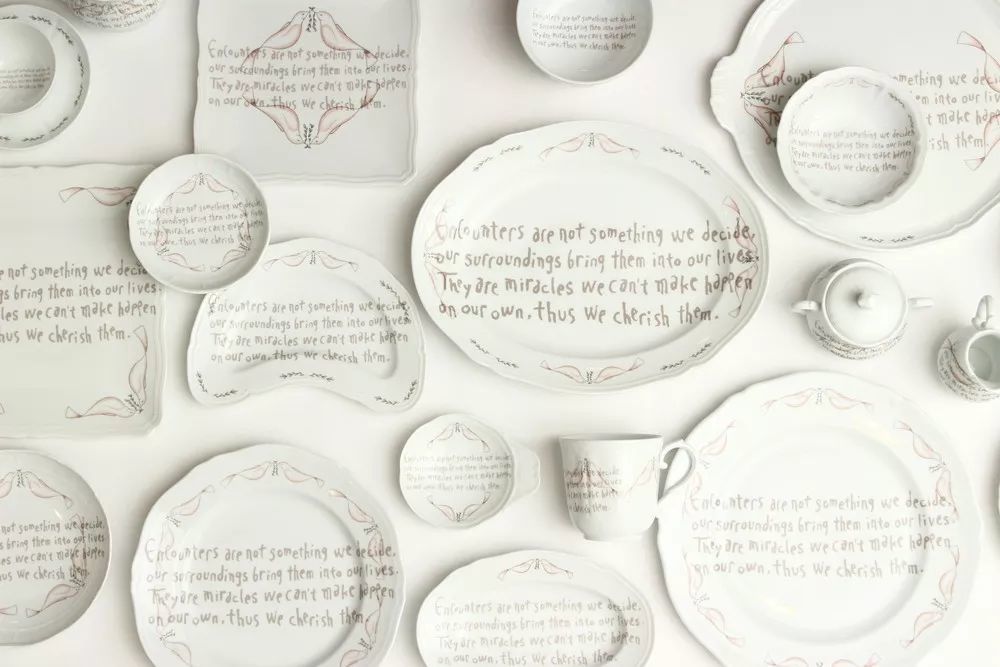 Encounters are not something we decide,
our surroundings bring them into our lives.
They are miracles we can't make happen
on our own, thus we cherish them.
Encounters are not something we decide,
our surroundings bring them into our lives.
They are miracles we can't make happen
on our own, thus we cherish them.
Encounters are not something we decide,
our surroundings bring them into our lives.
They are miracles we can't make happen
on our own, thus we cherish them.
Encounters are not something we decide,
our surroundings bring them into our lives.
They are miracles we can't make happen
on our own, thus we cherish them.
not something we
bring them into our lives.
miracles we can't make happen
thus we cherish them.
Encounters are not something we decide,
our surroundings bring them into our lives.
They are miracles we can't make happen
on our own, thus we cherish them.
Encounters are not something we decide,
our surroundings bring them into our lives.
They are miracles we can't make happen
on our own, thus we cherish them.
Encounters are not something we decide,
our surroundings bring them into our lives.
They are miracles we can't make happen
on our own, thus we cherish them.
not something we decide,
bring them into our lives.
miracles we can't make happen
thus we cherish them.
Encounters are not something we decide,
our surroundings bring them into our lives.
They are miracles we can't make happen
on our own, thus we cherish them.
Encounters are not something we decide,
our surroundings bring them into our lives.
They are miracles we can't make happen
on our own, thus we cherish them.
Encounters are not something we decide,
our surroundings bring them into our lives.
They are miracles we can't make happen
on our own, thus we cherish them.